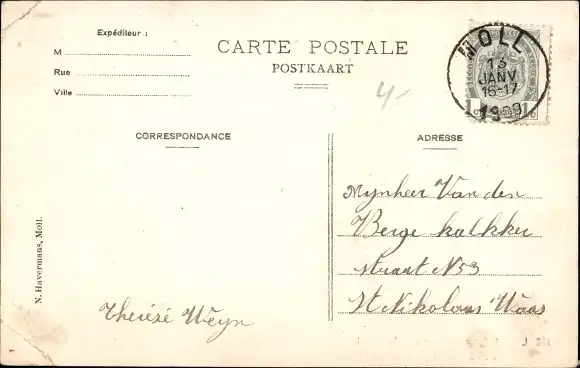 Expéditeur :
M
Rue
Ville
CARTE POSTALE
POSTKAART
4-
MOLL
13
JANV
16-17
1909
1 1
CORRESPONDANCE
ADRESSE
Mynheer Van den
Berge kalkker
straat N53
St Nikolaas Waas
Therésé Weyn
N. Havermans, Moll.